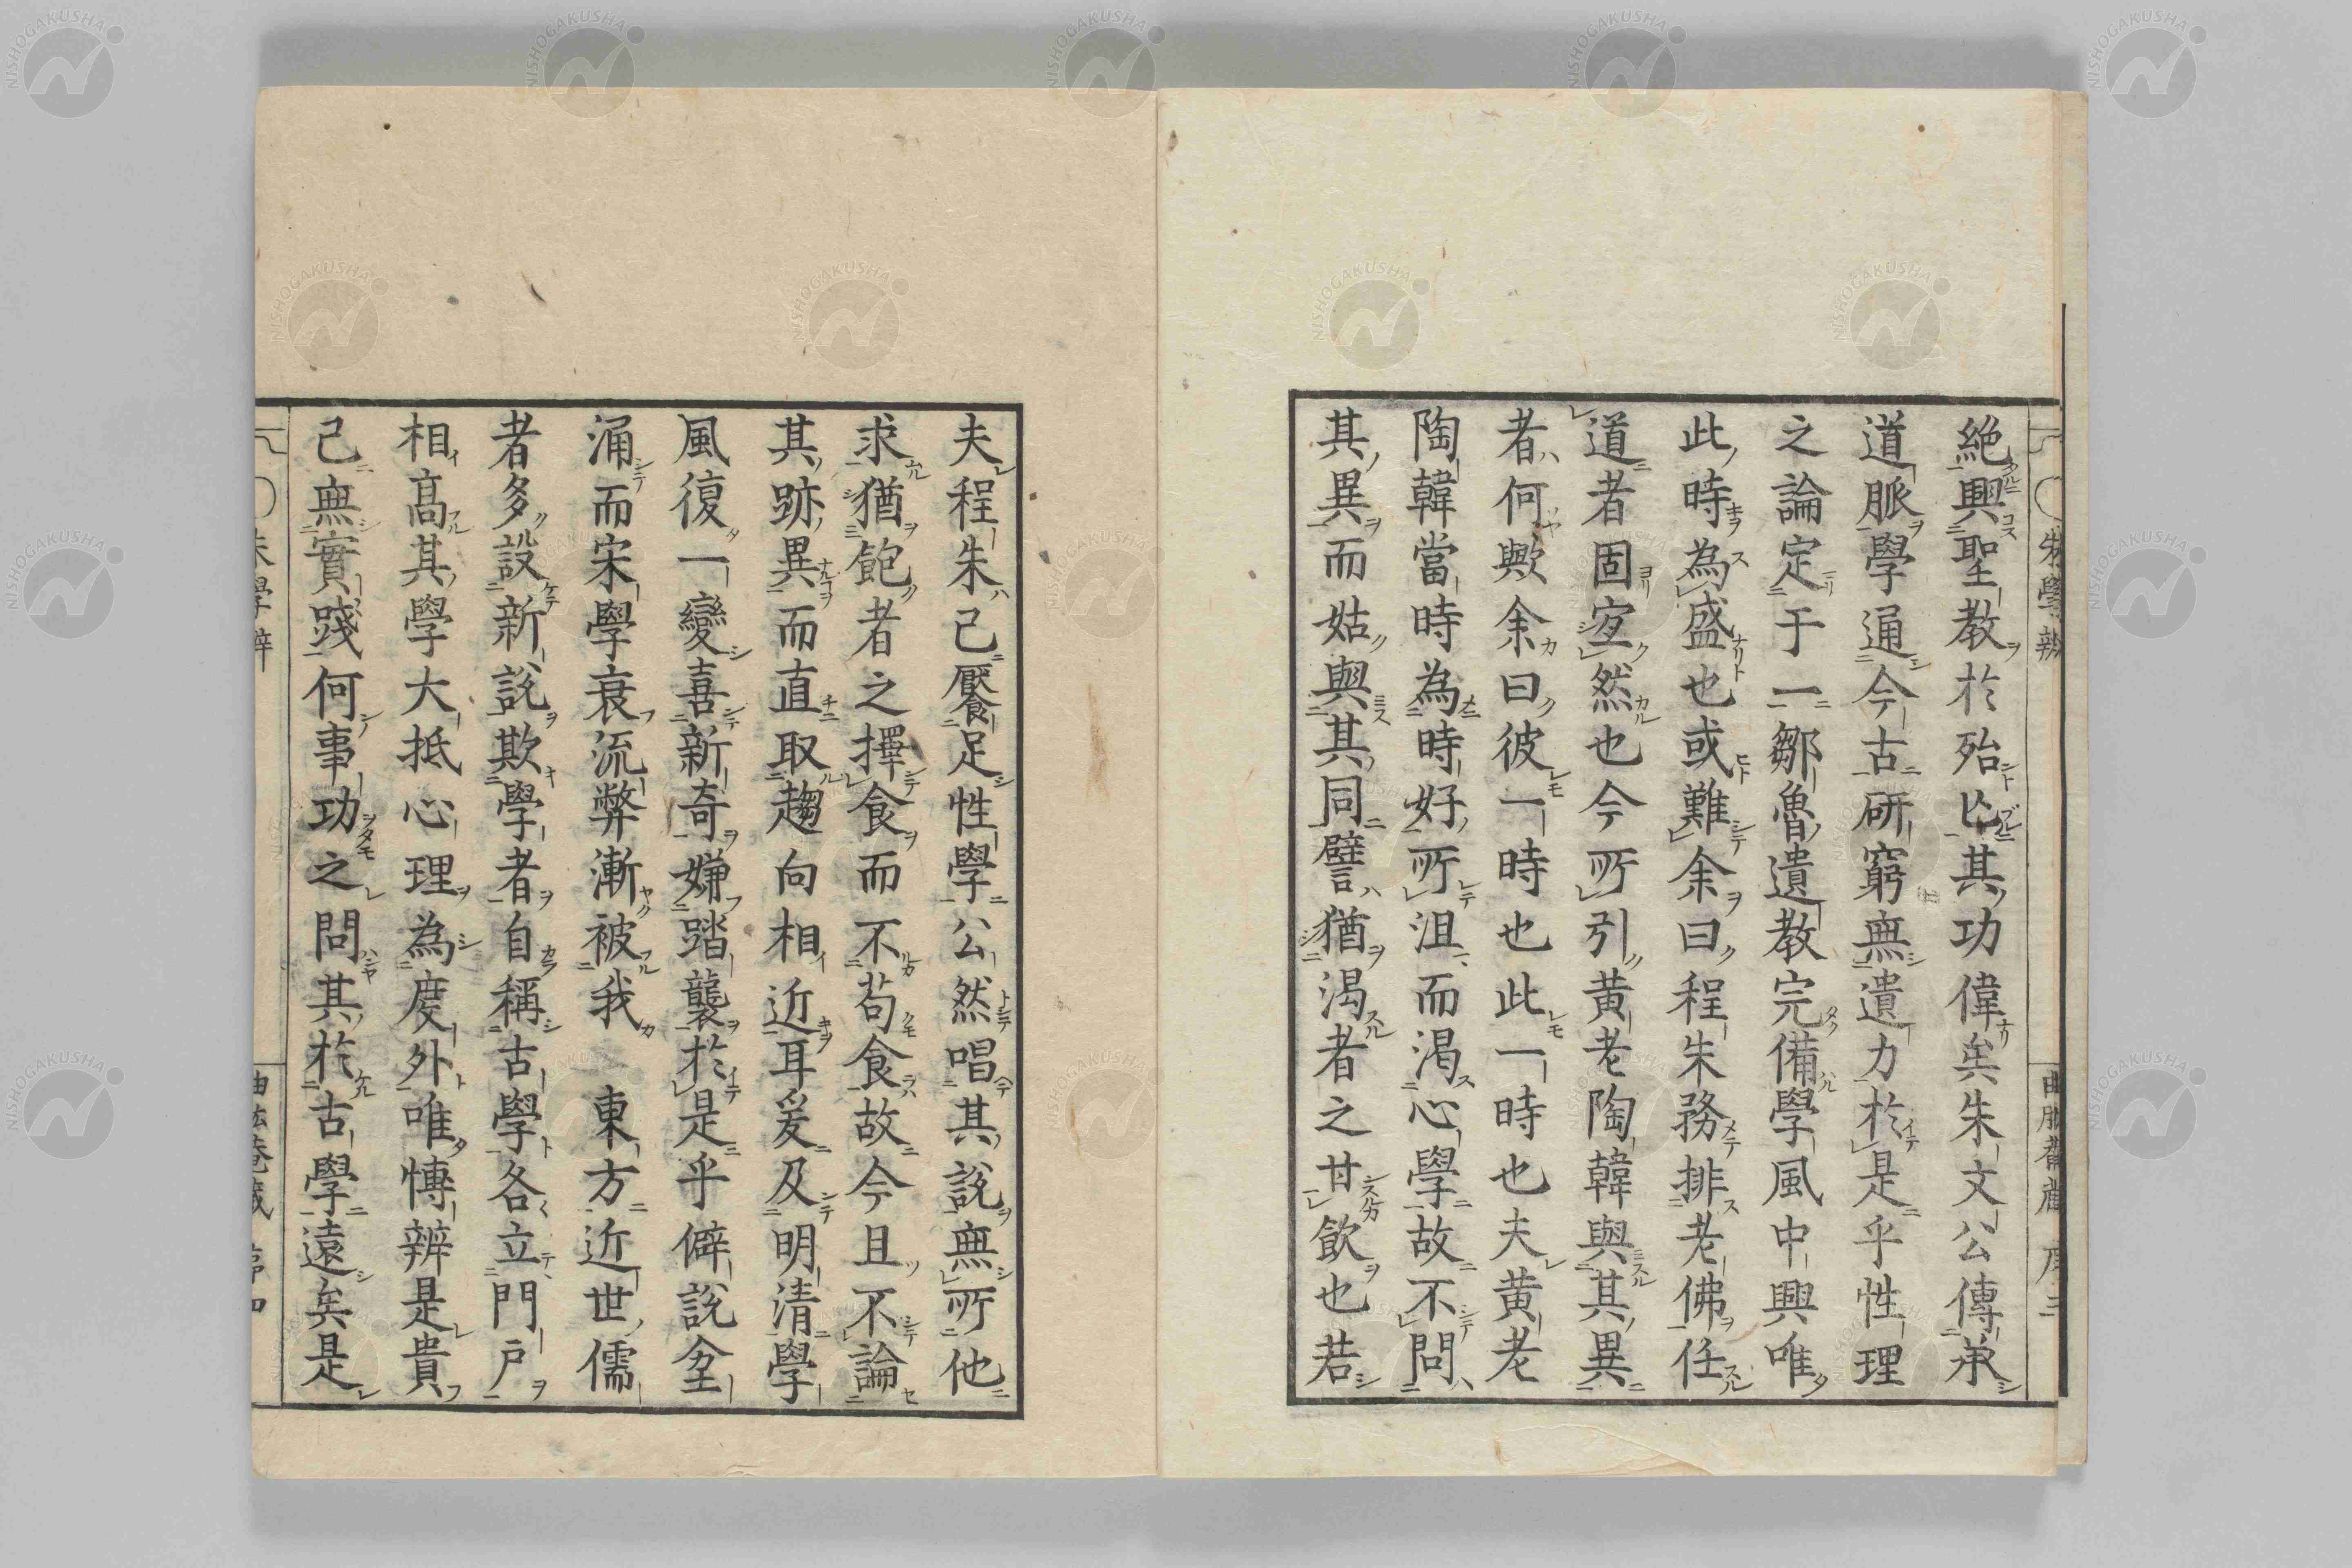 絶興聖教於殆亡其功偉矣朱文公傳承
道脈學通今古研窮無遺力於是乎性理
之論定于一鄒魯遺教完備學風中興唯
此時為盛也或難余曰程朱務排老佛任
道者固宜然也今所引黄老陶韓與其異
者何歟余曰彼一時也此一時也夫黄老
陶韓當時為時好所沮而渴心學故不問
其異而姑與其同譬猶渴者之甘飲也若
夫程朱己饜足性學公然唱其說無所他
求猶飽者之擇食而不苟食故今且不論
其跡異而直取趨向相近耳爰及明清學
風復一變喜新奇嫌踏襲於是乎僻說坌
涌而宋學衰流弊漸被我 東方近世儒
者多設新說欺學者自稱古學各立門戸
相高其學大抵心理為度外唯愽辨是貴
己無實踐何事功之問其於古學遠矣是
朱學辨
序三
NISHOGAKUSHA